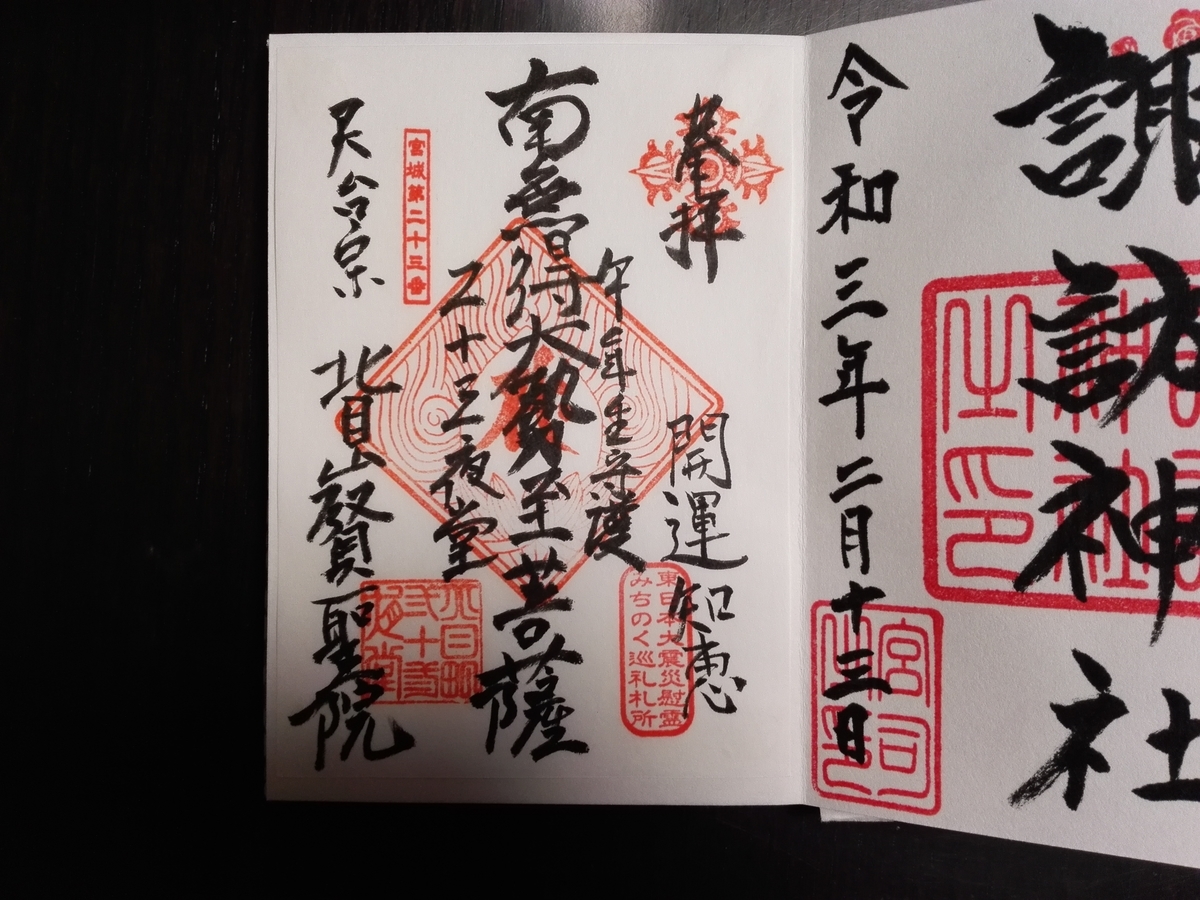 諏訪神社
令和三年二月十三日
宮司之印
奉拝
開運知恵
東日本大震災慰霊
みちのく巡礼札所
午年生守護
南無得大勢至菩薩
二十三夜堂
宮城第二十三番
天台宗
北目山賢聖院